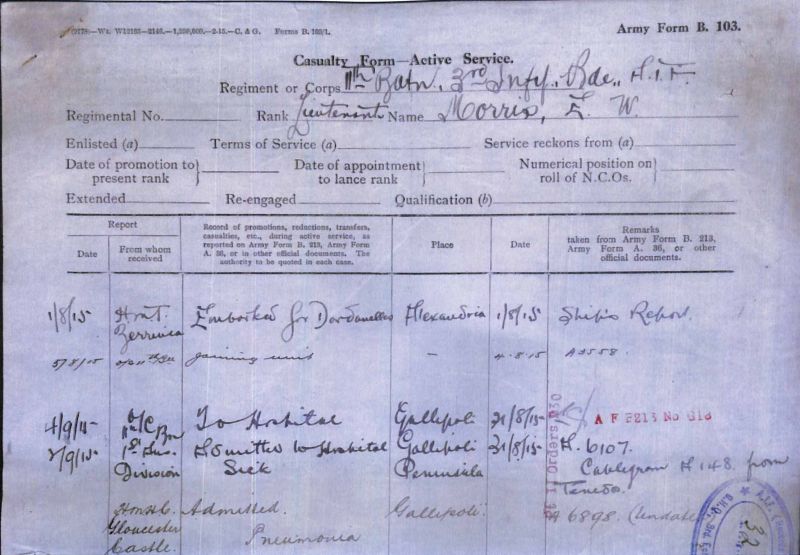 (9778—Wt. W12163—2146.—1,200,000.—2-15.—C. & G. Forms B. 103/1.
Army Form B. 103.
Casualty Form—Active Service.
Regiment or Corps 11th Batn, 3rd Infy, Bde., A.I.F.
Regimental No. Rank Lieutenant Name Morris, W.
Enlisted (a) Terms of Service (a) Service reckons from (a)
Date of promotion to present rank } Date of appointment to lance rank } Numerical position on roll of N.C.Os. }
Extended Re-engaged Qualification (b)
Report
Date From whom received
Record of promotions, reductions, transfers, casualties, etc., during active service, as reported on Army Form B. 213, Army Form A. 36, or in other official documents. The authority to be quoted in each case.
Place
Date
Remarks
taken from Army Form B. 213, Army Form A. 36, or other official documents.
1/8/15 Embarked for Dardanelles Alexandria 1/8/15 Ship's Report.
5/8/15 joining unit — 4.8.15 A3558.
4/9/15 To Hospital Gallipoli 31/8/15 A F B213 No
Division Admitted to Hospital Sick Gallipoli Peninsula 31/8/15 A.6107.
Cablegram A 148 from Tenedos
Gloucester Castle. Admitted. Pneumonia Gallipoli. A6898. (undated)
Orders
32